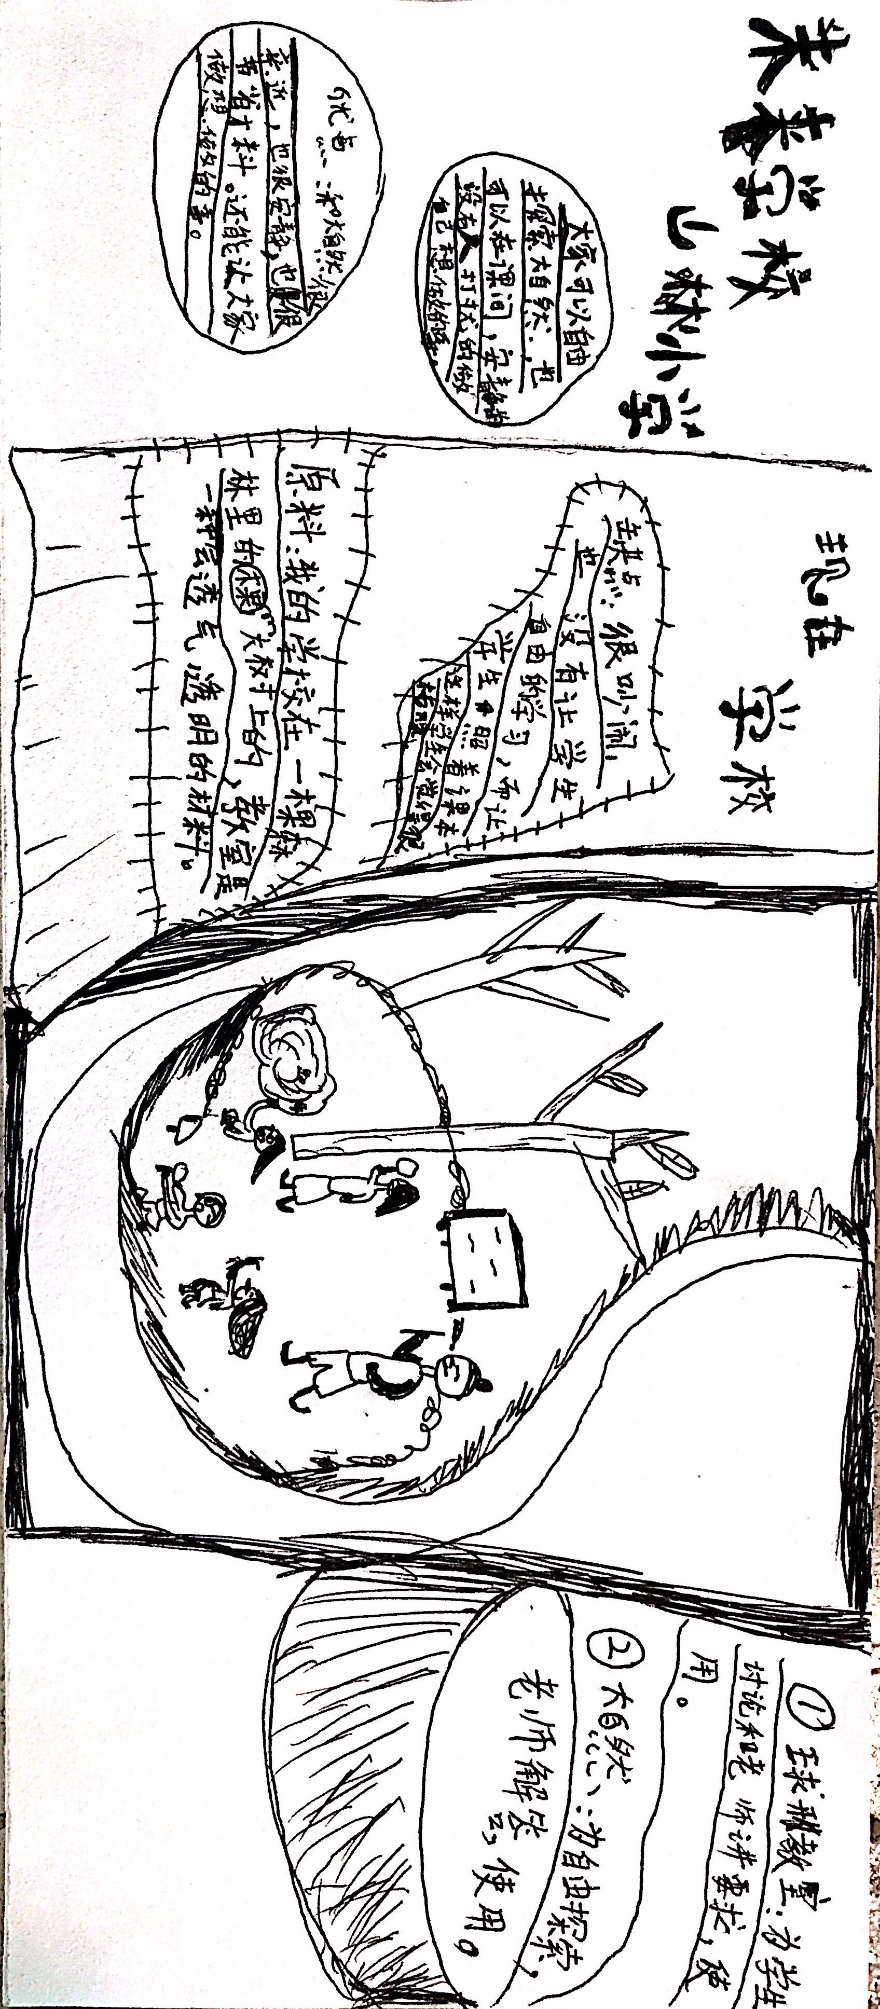 未来学校
山林小学
大家可以自由
探索大自然，也
可以在课间，安静的
没有人打扰的做
自己想做的事。
优点：和大自然很
亲近，也很安静，也很
节省材料。还能让大家
做想做的事。
现在学校
缺点：很吵闹，
也没有让学生
自由的学习，而让
学生照着课本
这样学生会觉得很
原料：我的学校在一棵森
林里的棵大树上的，教室是
一种会透气透明的材料。
①球形教室：为学生
讨论和老师讲要求，使
用。
②大自然：为自由探索，
老师解答，使用。